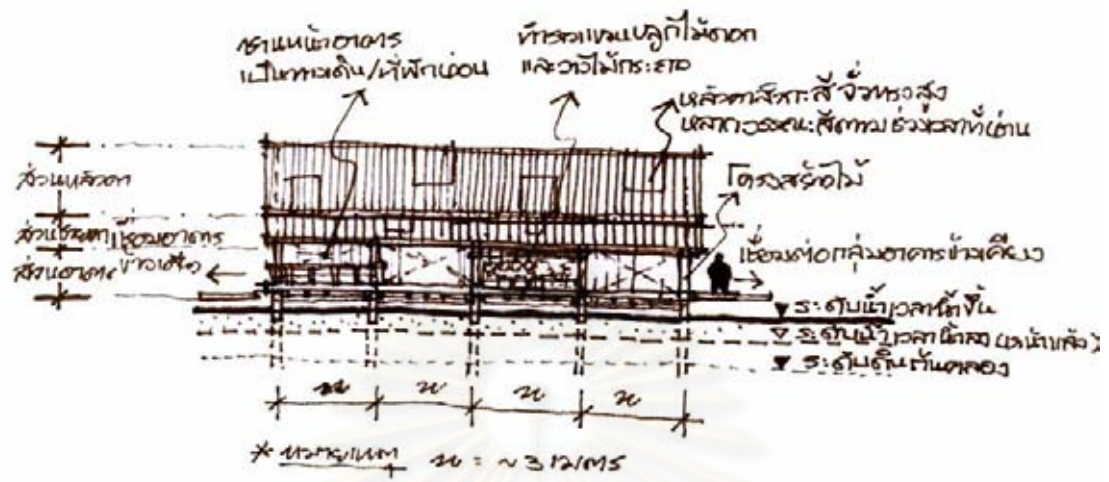 ชานหน้าอาคาร
เป็นทางเดิน/ที่พักผ่อน
ทำราวแขวนปลูกไม้ดอก
และวางไม้กระถาง
หลังคาสังกะสี จั่วทรงสูง
หลากวรรณะสีตามช่วงเวลาที่ผ่าน
โครงสร้างไม้
ส่วนหลังคา
ส่วนชายคา
เชื่อมอาคาร
ส่วนอาคาร
ข้างเคียง
เชื่อมต่อกลุ่มอาคารข้างเคียง
▼ ระดับน้ำเวลาน้ำขึ้น
▽ ระดับน้ำเวลาน้ำลง (หน้าแล้ง)
▼ ระดับดินก้นคลอง
ห ห ห ห
* หมายเหตุ ห = ~3 เมตร